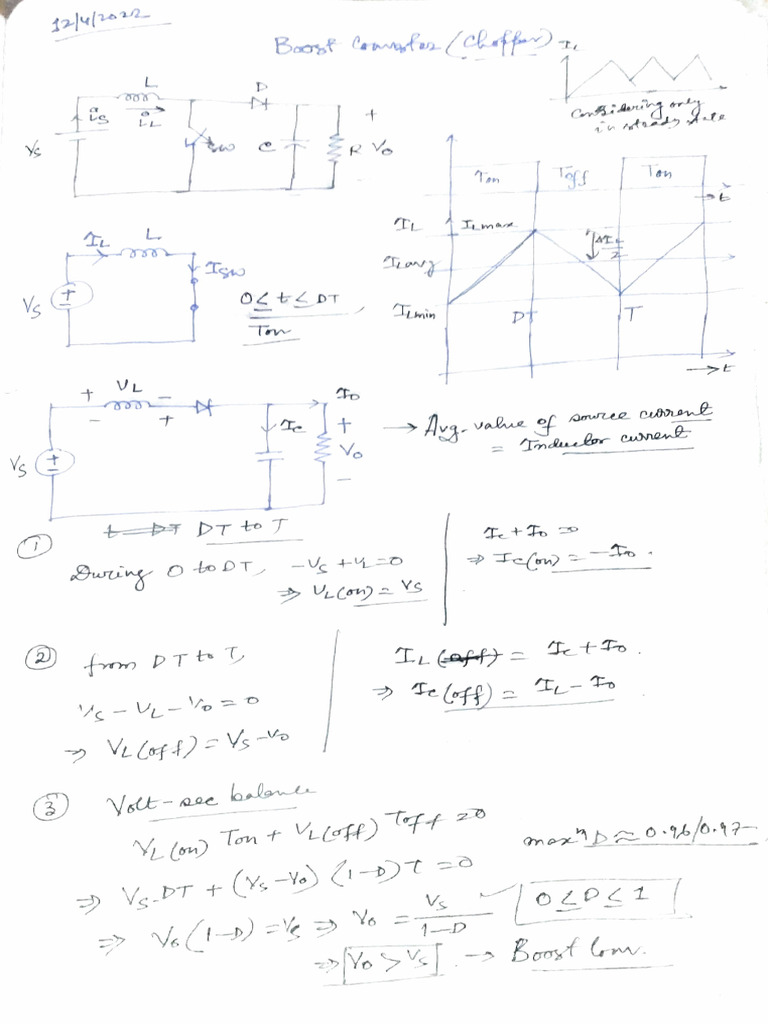 12/4/2022
Boost Converter (Chopper)
I_L
Considering only
in steady state
L
D
i_s
i_L
V_s
SW
C
R
V_o
+
Ton
Toff
Ton
→ t
I_L
I_Lmax
ΔI_L/2
I_Lavg
I_Lmin
DT
T
→ t
I_L
L
I_SW
V_s
0 ≤ t ≤ DT
Ton
+ V_L −
− +
I_o
I_c
+
V_o
−
V_s
→ Avg. value of source current
= Inductor current
DT to T
① During 0 to DT, −V_s + V_L = 0
⇒ V_L(on) = V_s
I_c + I_o = 0
⇒ I_c(on) = −I_o.
② from DT to T,
V_s − V_L − V_o = 0
⇒ V_L(off) = V_s − V_o
I_L (off) = I_c + I_o.
⇒ I_c(off) = I_L − I_o
③ Volt-sec balance
V_L(on) Ton + V_L(off) Toff = 0
maxᵐ D ≈ 0.96/0.97
⇒ V_s.DT + (V_s − V_o) (1−D)T = 0
⇒ V_o(1−D) = V_s ⇒ V_o = V_s/(1−D) ✓ 0 ≤ D ≤ 1
⇒ V_o > V_s. → Boost Conv.